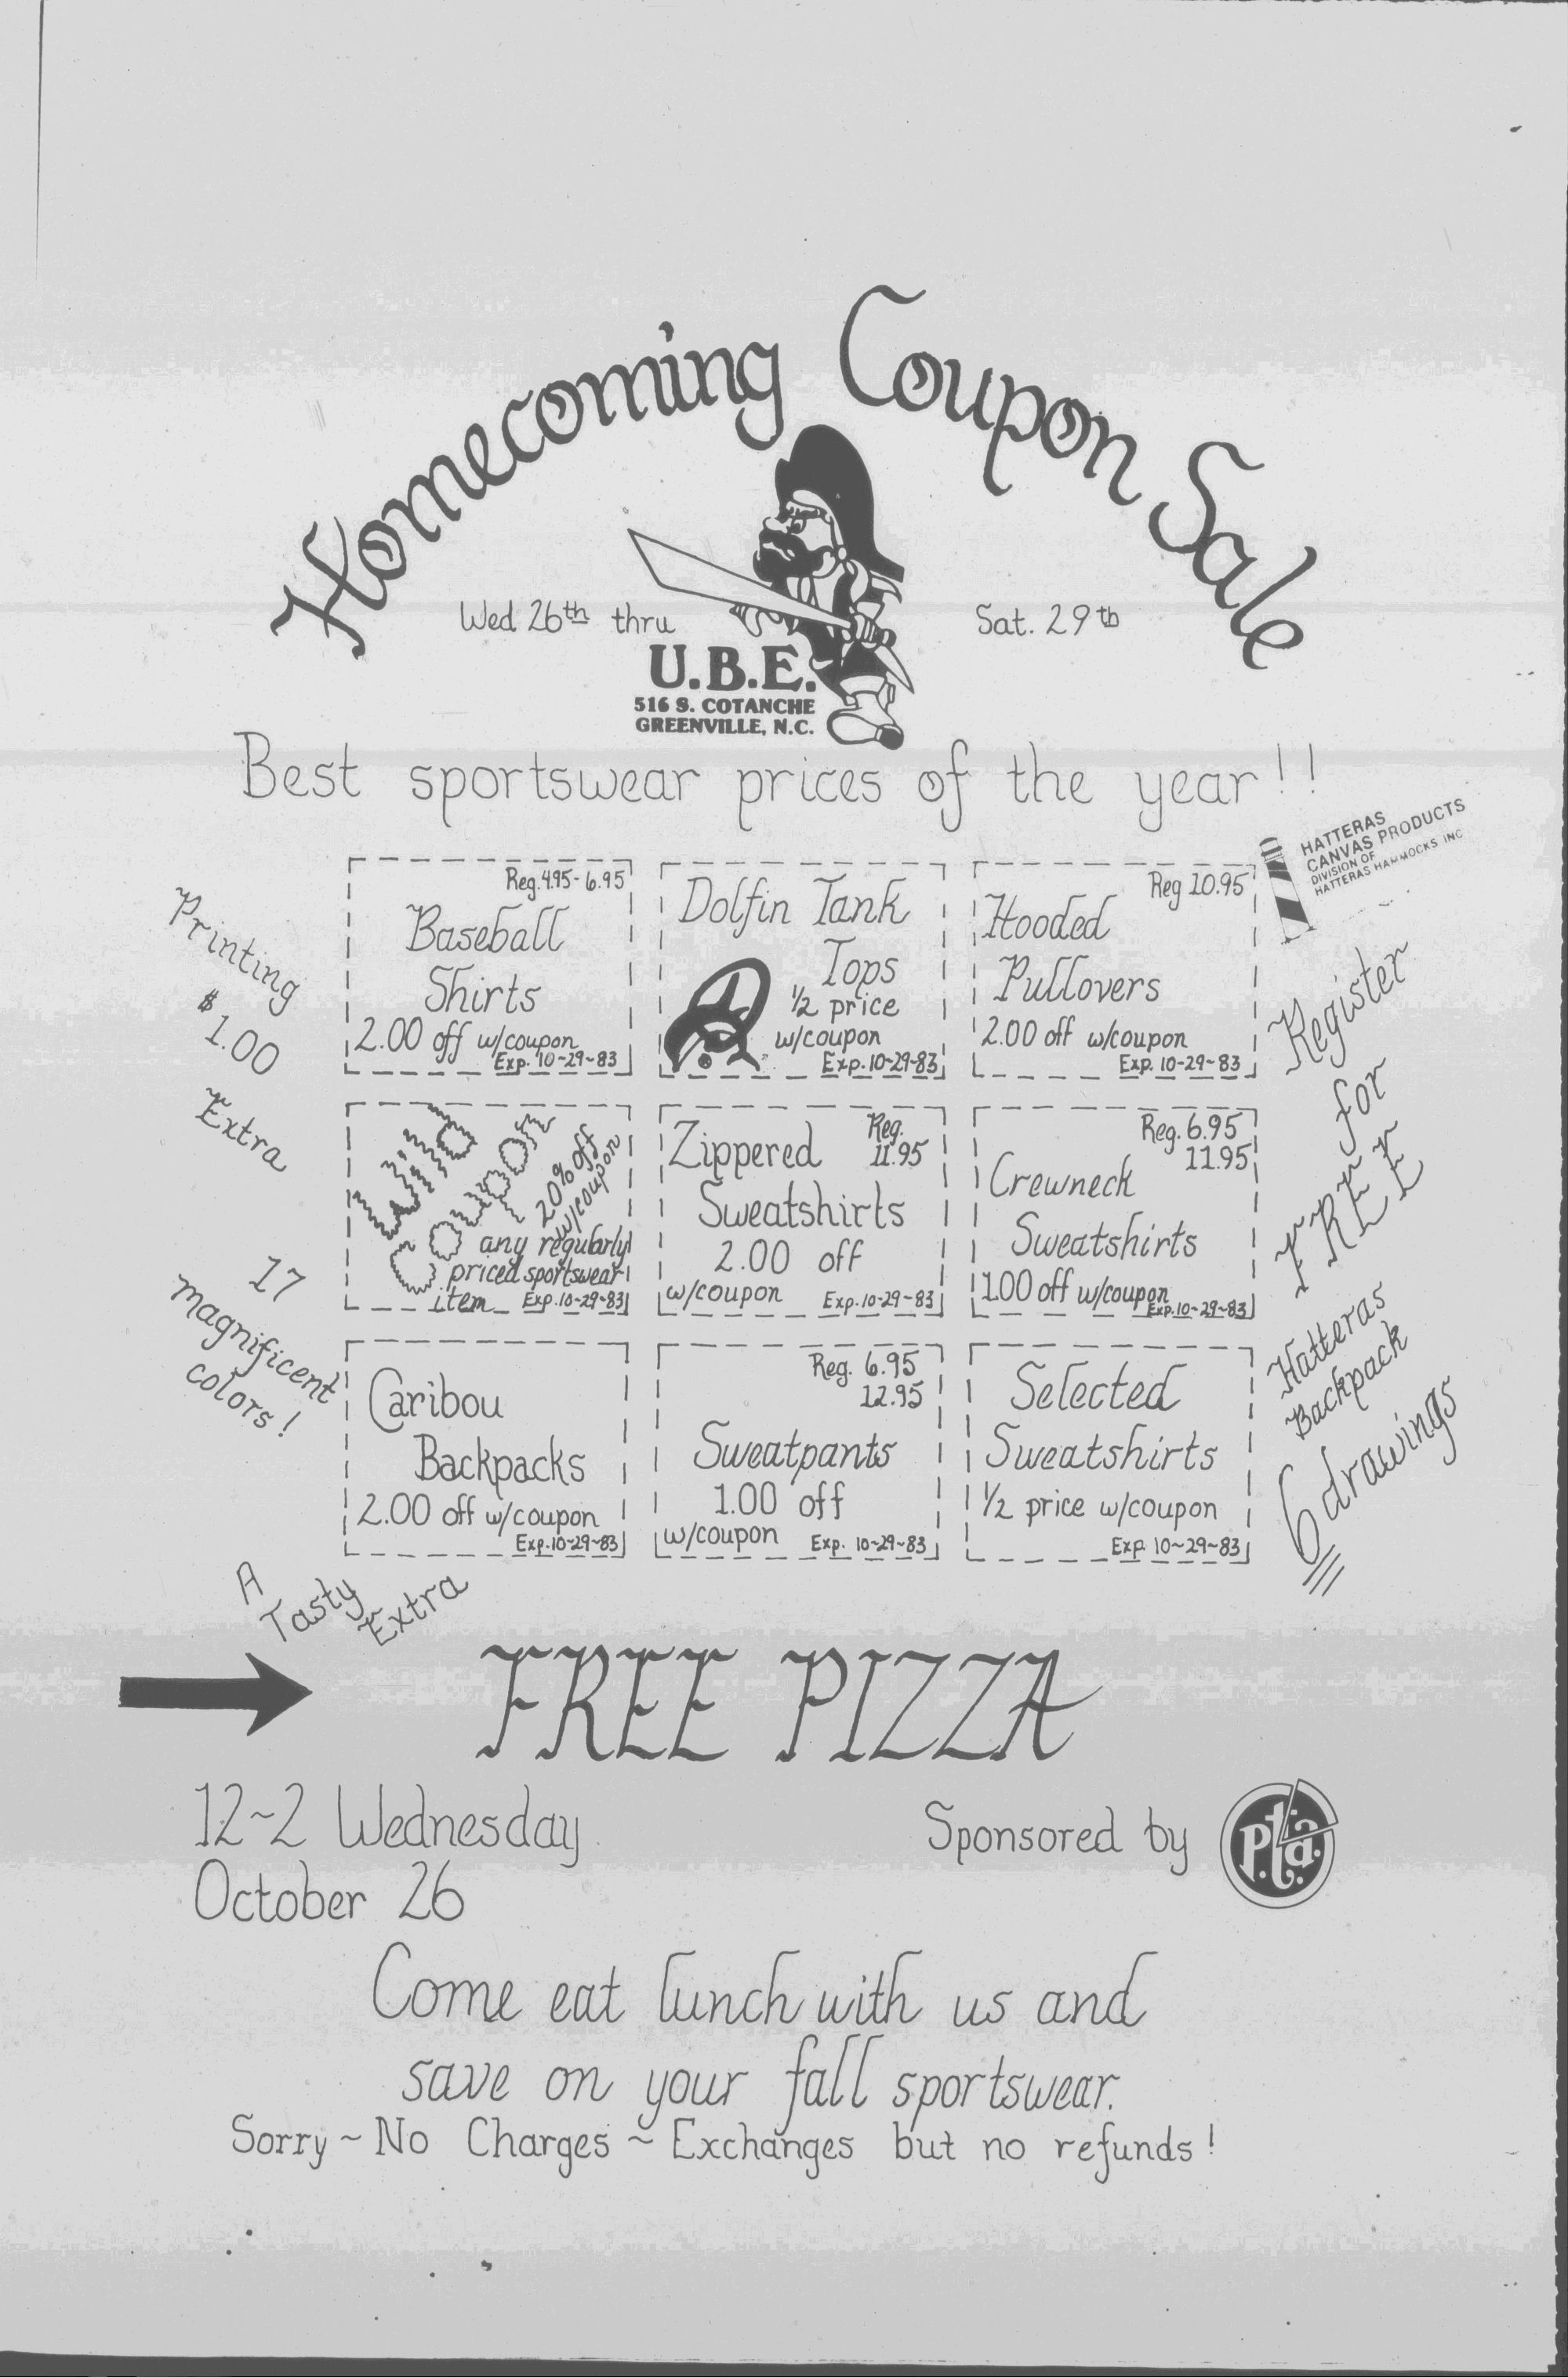 Homecoming Coupon Sale
Wed 26th thru
Sat. 29th
U.B.E.
516 S. COTANCHE
GREENVILLE, N.C.
Best sportswear prices of the year!!
HATTERAS
CANVAS PRODUCTS
DIVISION OF
HATTERAS HAMMOCKS INC
Printing
$1.00
Extra
17
magnificent
colors!
Reg. 4.95-6.95
Baseball
Shirts
2.00 off w/coupon
Exp. 10-29-83
Dolfin Tank
Tops
1/2 price
w/coupon
Exp. 10-29-83
Reg 10.95
Hooded
Pullovers
2.00 off w/coupon
Exp. 10-29-83
Wild
Coupon
20% off
w/coupon
any regularly
priced sportswear
item Exp. 10-29-83
Zippered Reg.
11.95
Sweatshirts
2.00 off
w/coupon Exp. 10-29-83
Reg. 6.95
11.95
Crewneck
Sweatshirts
1.00 off w/coupon
Exp. 10-29-83
Caribou
Backpacks
2.00 off w/coupon
Exp. 10-29-83
Reg. 6.95
12.95
Sweatpants
1.00 off
w/coupon Exp. 10-29-83
Selected
Sweatshirts
1/2 price w/coupon
Exp 10~29~83
Register
for
FREE
Hatteras
Backpack
6 drawings
A
Tasty
Extra
FREE PIZZA
12~2 Wednesday
October 26
Sponsored by
P.t.a.
Come eat lunch with us and
save on your fall sportswear.
Sorry ~ No Charges ~ Exchanges but no refunds!